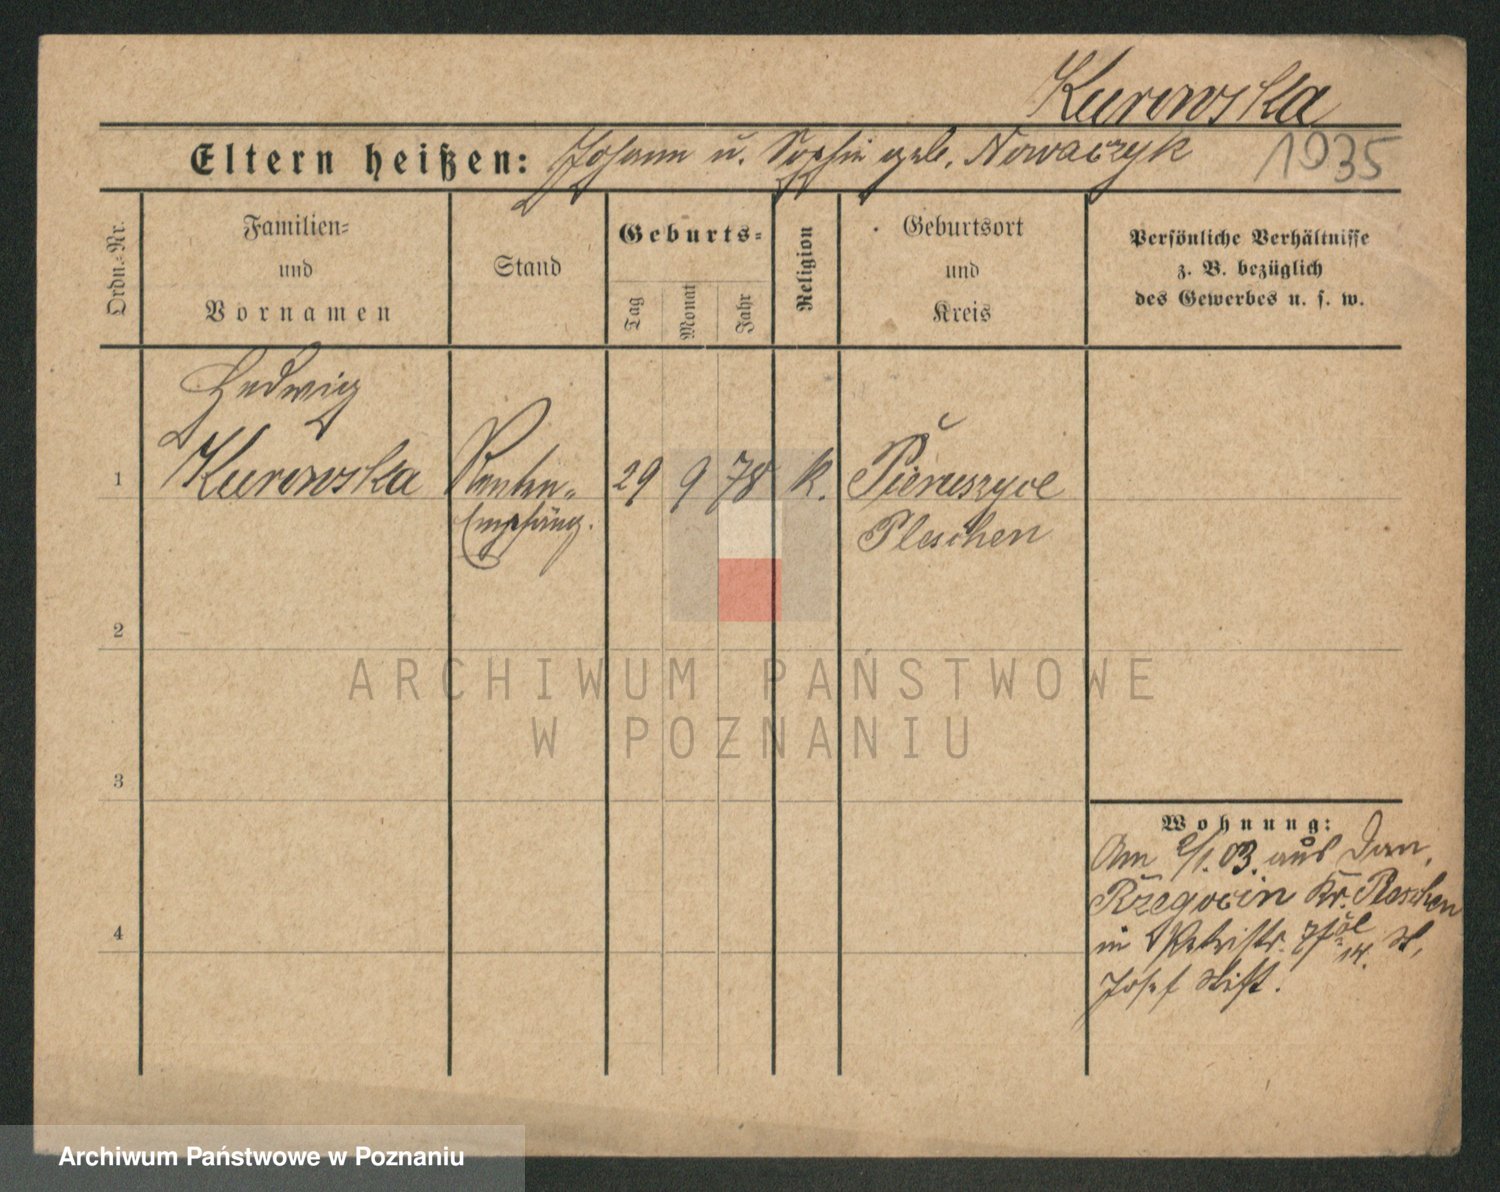 Kurowska
Eltern heißen: Johann u. Sophie geb. Nowaczyk 1935
Ordn.-Nr.
Familien-
und
Vornamen
Stand
Geburts-
Tag
Monat
Jahr
Religion
Geburtsort
und
Kreis
Persönliche Verhältnisse
z. B. bezüglich
des Gewerbes u. s. w.
Hedwig
1 Kurowska Renten- 29 9 78 K. Pieruszyce
Empfäng. Pleschen
2
3
4
Wohnung:
Am 2/1. 03. aus
Rzegocin Kr. Pleschen
in Petristr. St.
Josef Stift.
ARCHIWUM PAŃSTWOWE
W POZNANIU
Archiwum Państwowe w Poznaniu